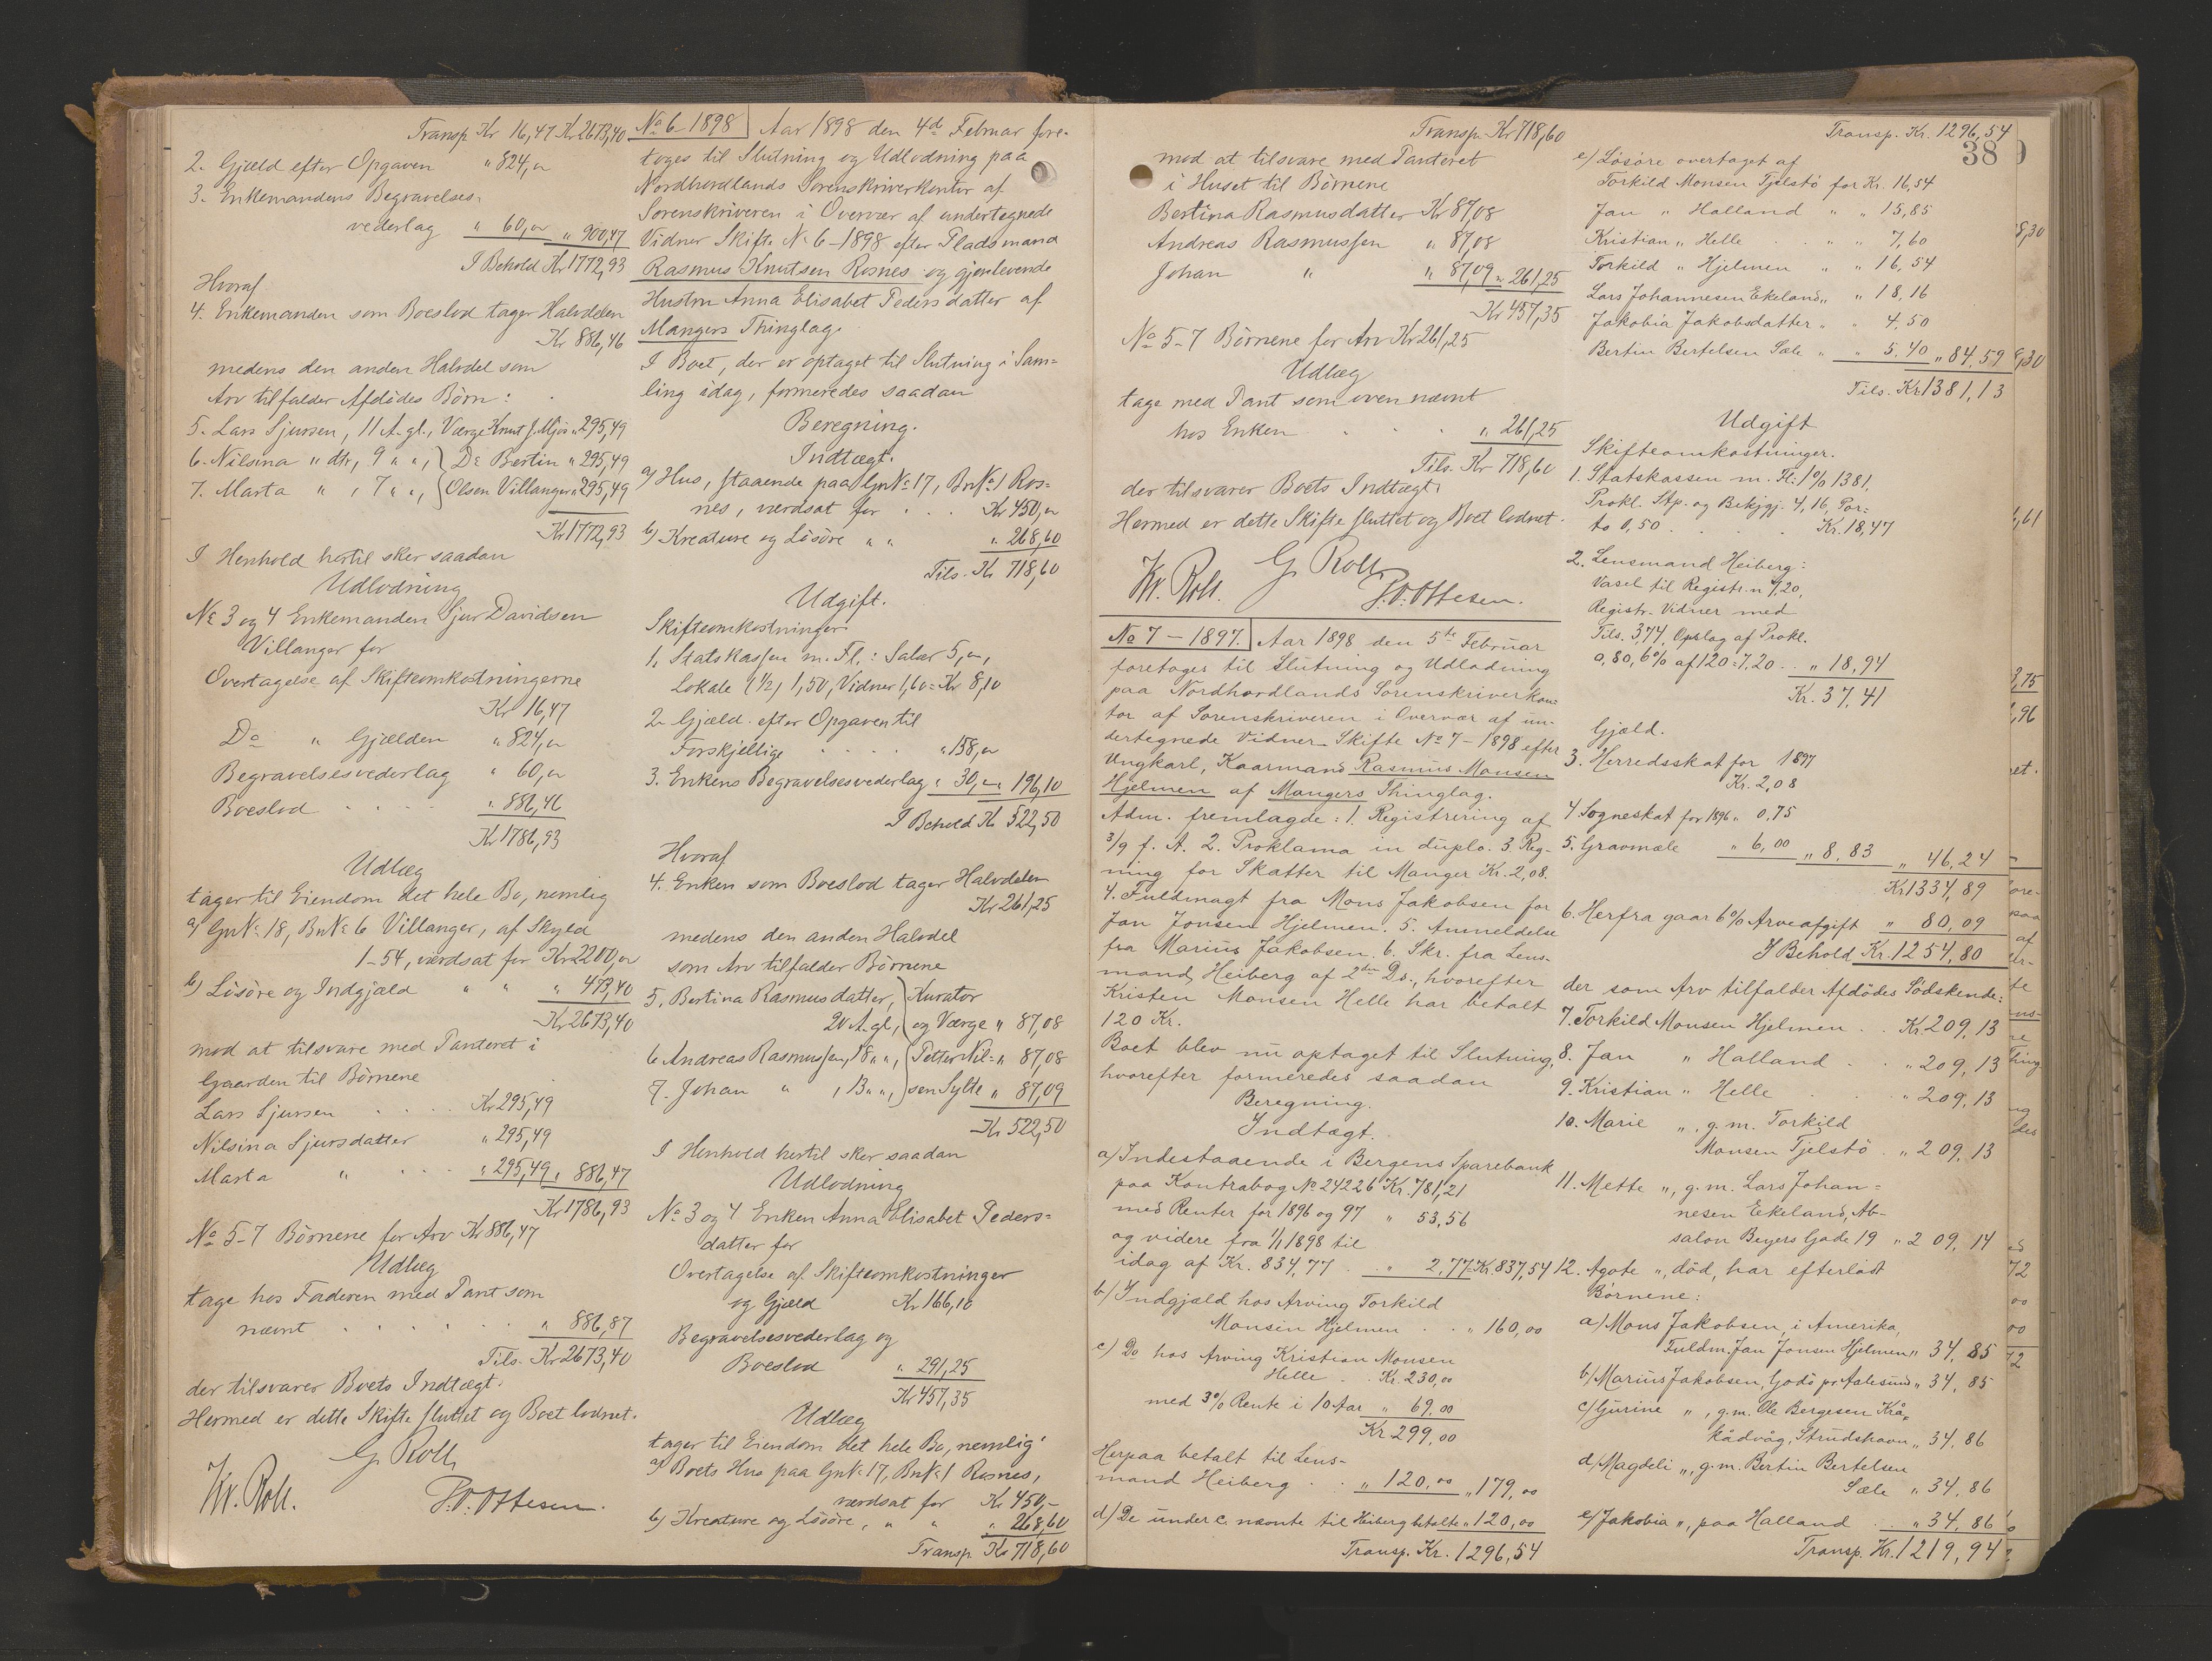 Transp. Kr 16,47 Kr 2673,40
2. Gjæld efter Opgaven " 824,"
3. Enkemandens Begravelses-
vederlag " 60,"  " 900,47
I Behold Kr 1772,93
Hvoraf
4. Enkemanden som Boeslod tager Halvdelen
Kr 886,46
medens den anden Halvdel som
Arv tilfalder Afdødes Børn:
5. Lars Sjursen, 11 A. gl., Værge Knut J. Mjøs " 295,49
6. Nilsina " dtr, 9 " ", Do Bertin " 295,49
7. Marta " , 7 " ", Olsen Villanger " 295,49
Kr 1772,93
I Henhold hertil sker saadan
Udlodning
No 3 og 4 Enkemanden Sjur Davidsen
Villanger for
Overtagelse af Skifteomkostningerne
Kr 16,47
Do " Gjælden " 824,"
Begravelsesvederlag " 60,"
Boeslod . . . . " 886,46
Kr 1786,93
Udlæg
tager til Eiendom det hele Bo, nemlig
a) GnNo 18, BnNo 6 Villanger, af Skyld
1-54, værdsat for Kr 2200,"
b) Løsøre og Indgjæld " " " 473,40
Kr 2673,40
mod at tilsvare med Panteret i
Gaarden til Børnene
Lars Sjursen . . . . Kr 295,49
Nilsina Sjursdatter " 295,49
Marta " . . . " 295,49 " 886,47
Kr 1786,93
No 5-7 Børnene for Arv Kr 886,47
Udlæg
tage hos Faderen med Pant som
nævnt . . . . . . " 886,87
Tils. Kr 2673,40
der tilsvarer Boets Indtægt.
Hermed er dette Skifte sluttet og Boet lodnet.
G. Roll
Kr. Roll. P.O. Ottesen.
No 6-1898 Aar 1898 den 4de Februar fore-
toges til Slutning og Udlodning paa
Nordhordlands Sorenskriverkontor af
Sorenskriveren i Overvær af undertegnede
Vidner Skifte No 6-1898 efter Pladsmand
Rasmus Knutsen Rosnes og gjenlevende
Hustru Anna Elisabet Pedersdatter af
Mangers Thinglag.
I Boet, der er optaget til Slutning i Sam-
ling idag, formeredes saadan
Beregning.
Indtægt.
a) Hus, staaende paa GnNo 17, BnNo 1 Ros-
nes, værdsat for . . . Kr 450,"
b) Kreature og Løsøre " " " 268,60
Tils. Kr 718,60
Udgift.
Skifteomkostninger.
1. Statskassen m. Fl.: Salær 5,",
Lokale (1/2) 1,50, Vidner 1,60 = Kr 8,10
2. Gjæld efter Opgaven til
Forskjellige . . . . " 158,"
3. Enkens Begravelsesvederlag " 30," " 196,10
I Behold Kr 522,50
Hvoraf
4. Enken som Boeslod tager Halvdelen
Kr 261,25
medens den anden Halvdel
som Arv tilfalder Børnene
5. Bertina Rasmusdatter, Kurator
20 A. gl., og Værge " 87,08
6. Andreas Rasmussen, 18 " ", Petter Nil= " 87,08
7. Johan " , 13 " ", sen Sylte " 87,09
Kr 522,50
I Henhold hertil sker saadan
Udlodning
No 3 og 4 Enken Anna Elisabet Peders=
datter for
Overtagelse af Skifteomkostninger
og Gjæld Kr 166,10
Begravelsesvederlag og
Boeslod " 291,25
Kr 457,35
Udlæg
tager til Eiendom det hele Bo, nemlig:
a) Boets Hus paa GnNo 17, BnNo 1 Rosnes,
værdsat for Kr 450,-
b) Kreature og Løsøre, " " " 268,60
Transp. Kr 718,60
Transp. Kr 718,60
mod at tilsvare med Panteret
i Huset til Børnene
Bertina Rasmusdatter Kr 87,08
Andreas Rasmussen " 87,08
Johan " " 87,09 " 261,25
Kr 457,35
No 5-7 Børnene for Arv Kr 261,25
Udlæg
tage med Pant som oven nævnt
hos Enken . . . . " 261,25
Tils. Kr 718,60
der tilsvarer Boets Indtægt.
Hermed er dette Skifte sluttet og Boet lodnet.
G. Roll
Kr. Roll. P.O. Ottesen.
No 7 - 1897. Aar 1898 den 5te Februar
foretoges til Slutning og Udlodning
paa Nordhordlands Sorenskriverkon=
tor af Sorenskriveren i Overvær af un-
dertegnede Vidner Skifte No 7 - 1898 efter
Ungkarl, Kaarmand Rasmus Monsen
Hjelmen af Mangers Thinglag.
Adm. fremlagde: 1. Registrering af
3/9 f. A. 2. Proklama in duplo. 3. Reg-
ning for Skatter til Manger Kr. 2,08.
4. Fuldmagt fra Mons Jakobsen for
Jan Jonsen Hjelmen. 5. Anmeldelse
fra Marius Jakobsen. 6. Skr. fra Lens-
mand Heiberg af 2den Ds., hvorefter
Kristen Monsen Helle har betalt
120 Kr.
Boet blev nu optaget til Slutning,
hvorefter formeredes saadan
Beregning.
Indtægt.
a) Indestaaende i Bergens Sparebank
paa Kontrabog No 24226 Kr. 781,21
med Renter for 1896 og 97 " 53,56
og videre fra 1/1 1898 til
idag af Kr. 834,77 . . " 2,77 = Kr. 837,54
b) Indgjæld hos Arving Torkild
Monsen Hjelmen . . " 160,00
c) Do hos Arving Kristian Monsen
Helle . . Kr. 230,00
med 3% Rente i 10 Aar " 69,00
Kr. 299,00
Herpaa betalt til Lens-
mand Heiberg . . " 120,00 " 179,00
d) De under c. nævnte til Heiberg betalte " 120,00
Transp. Kr. 1296,54
Transp. Kr. 1296,54
38
e) Løsøre overtaget af
Torkild Monsen Tjelstø for Kr. 16,54
Jan " Halland " " 15,85
Kristian " Helle . . " " 7,60
Torkild " Hjelmen " " 16,54
Lars Johannesen Ekeland " " 18,16
Jakobia Jakobsdatter " " 4,50
Bertin Bertelsen Sæle " " 5,40 " 84,59
Tils. Kr. 1381,13
Udgift
Skifteomkostninger.
1. Statskassen m. Fl: 1% 1381,
Prokl. Stp. og Bekjgj. 4,16, Por=
to 0,50 . . . . Kr. 18,47
2. Lensmand Heiberg:
Varsel til Registr. n 1,20,
Registr. Vidner med
Tils. 3,74, Opslag af Prokl.
0,80, 6% af 120 = 7,20 . . " 18,94
Kr. 37,41
Gjæld.
3. Herredsskat for 1897
Kr. 2,08
4. Sogneskat for 1896 " 0,75
5. Gravmæle " 6,00 " 8,83 " 46,24
Kr. 1334,89
6. Herfra gaar 6% Arveafgift " 80,09
I Behold Kr. 1254,80
der som Arv tilfalder Afdødes Sødskende:
7. Torkild Monsen Hjelmen . . Kr. 209,13
8. Jan " Halland . . " 209,13
9. Kristian " Helle . . " 209,13
10. Marie ", g. m. Torkild
Monsen Tjelstø . " 209,13
11. Mette ", g. m. Lars Johan=
nesen Ekeland, Ab-
salon Beyers Gade 19 " 209,14
12. Agate ", død, har efterladt
Børnene:
a) Mons Jakobsen, i Amerika,
Fuldm. Jan Jonsen Hjelmen " 34,85
b) Marius Jakobsen, Godø pr Aalesund " 34,85
c) Gurine ", g. m. Ole Bergesen Krå=
kådvåg, Strudshavn " 34,86
d) Magdeli ", g. m. Bertin Bertelsen
Sæle " 34,86
e) Jakobia ", paa Halland . . " 34,86
Transp. Kr. 1219,94